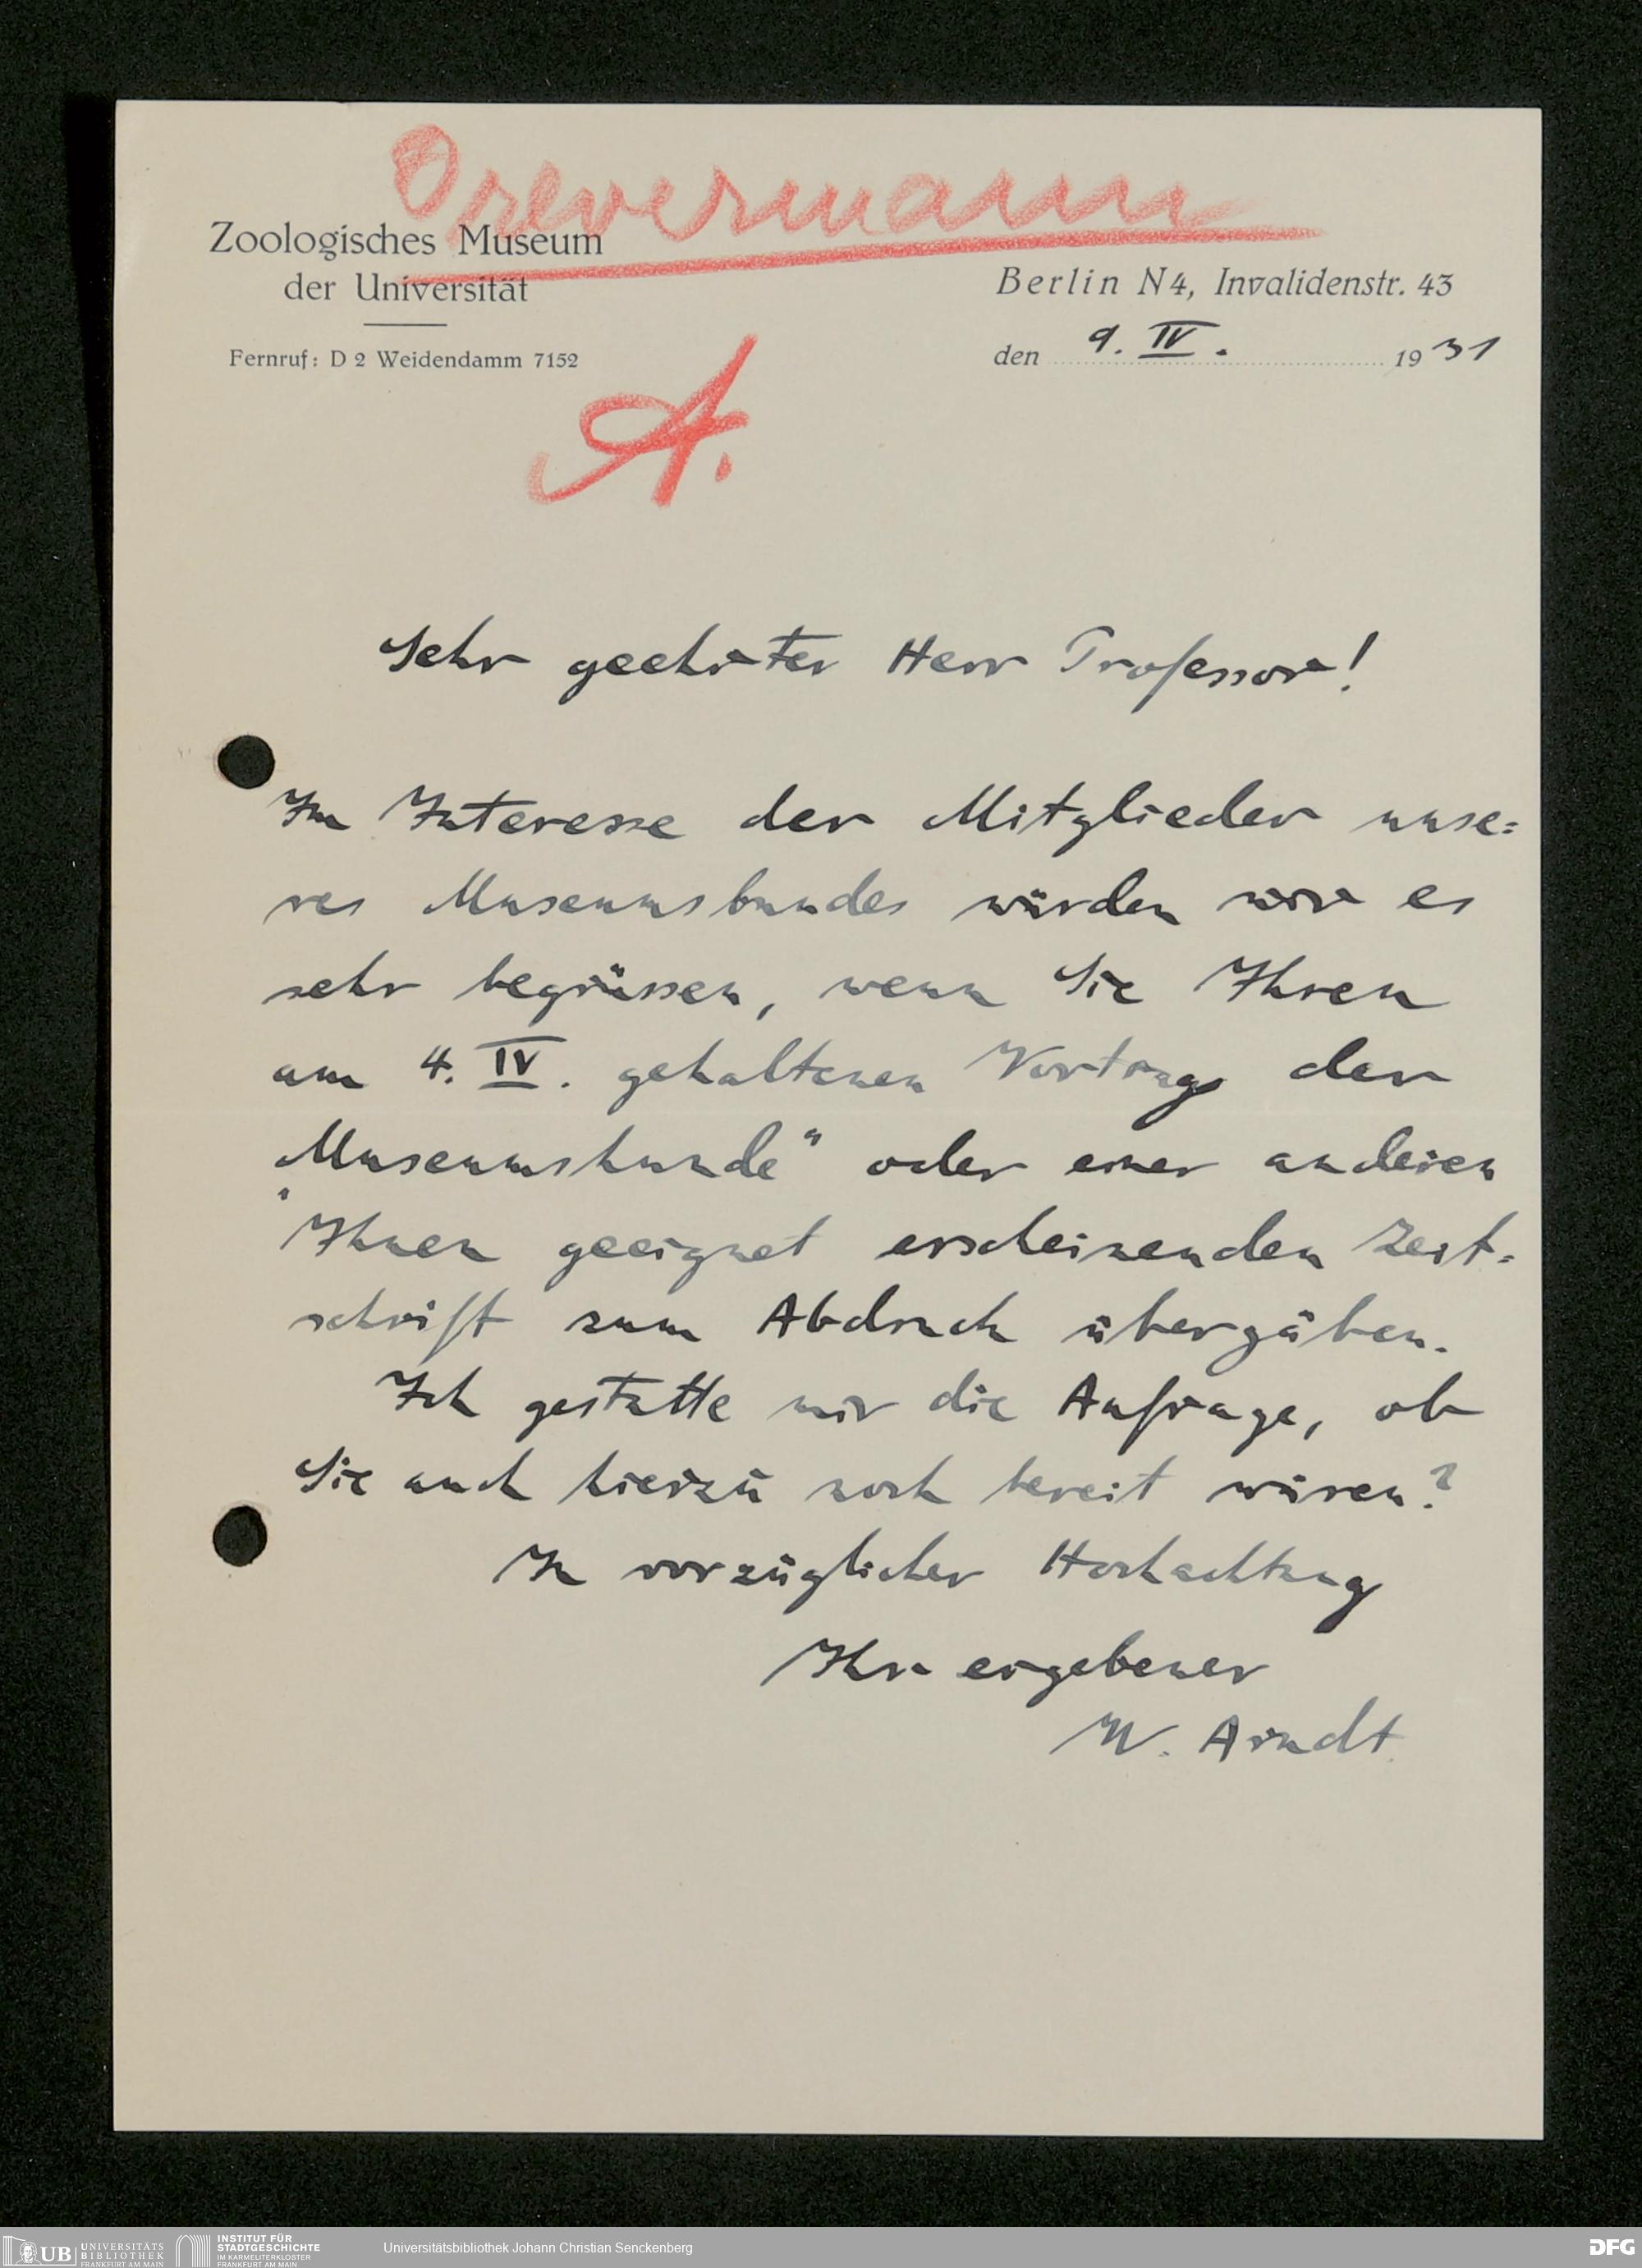 Drevermann
Zoologisches Museum
der Universität
Fernruf: D 2 Weidendamm 7152
Berlin N 4, Invalidenstr. 43
den 9. IV. 1931
A.
Sehr geehrter Herr Professor!
Im Interesse der Mitglieder unse=
res Museumsbundes würden wir es
sehr begrüssen, wenn Sie Ihren
am 4. IV. gehaltenen Vortrag der
„Museumskunde" oder einer anderen
Ihnen geeignet erscheinenden Zeit=
schrift zum Abdruck übergäben.
Ich gestatte mir die Anfrage, ob
Sie auch hierzu noch bereit wären?
In vorzüglicher Hochachtung
Ihr ergebener
W. Arndt.
UB UNIVERSITÄTS
BIBLIOTHEK
FRANKFURT AM MAIN
INSTITUT FÜR
STADTGESCHICHTE
IM KARMELITERKLOSTER
FRANKFURT AM MAIN
Universitätsbibliothek Johann Christian Senckenberg
DFG